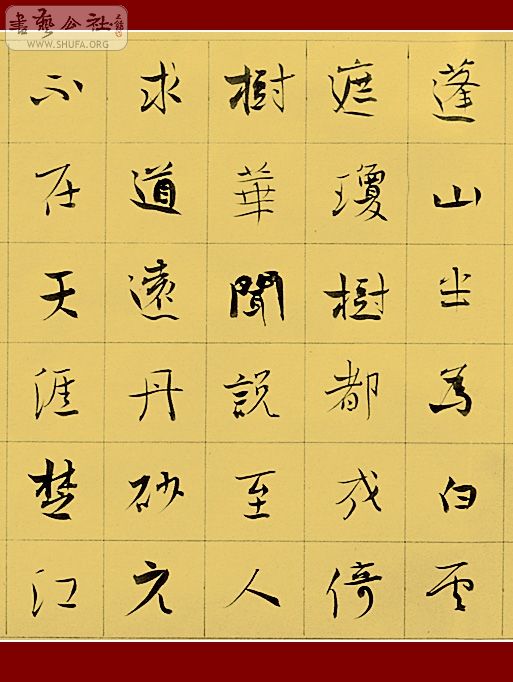 書藝公社
WWW.SHUFA.ORG
蓬山半為白雲
遮瓊樹都成倚
樹華聞說至人
求道遠丹砂元
不在天涯楚江